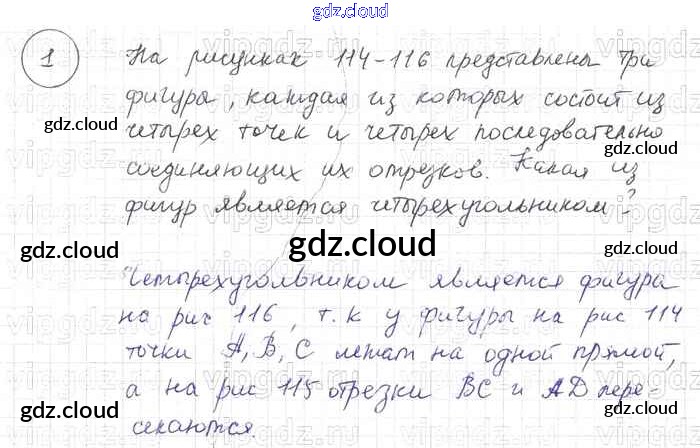 gdz.cloud
1
На рисунках 114-116 представлены три
фигура, каждая из которых состоит из
четырех точек и четырех последовательно
соединяющих их отрезков. Какая из
фигур является четырехугольником?
gdz.cloud
gdz.cloud
gdz.cloud
gdz.cloud
gdz.cloud
Четырехугольником является фигура
на рис 116, т.к у фигуры на рис 114
точки A, B, C лежат на одной прямой,
а на рис 115 отрезки BC и AD пере-
секаются.
gdz.cloud
gdz.cloud